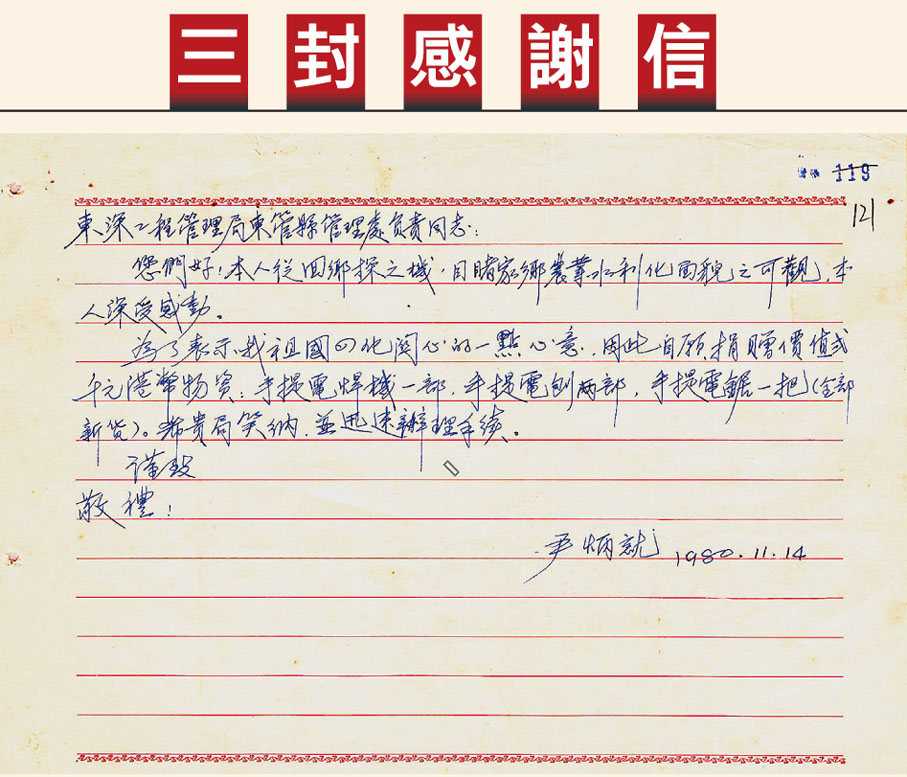 三封感謝信
119
121
東深工程管理局東管縣管理處负責同志：
您們好！本人從回鄉探之機，目睹家鄉農業水利化面貌之可觀，本
人深受感動。
為了表示我祖國四化関心的一點心意，因此自願捐贈價值弍
千元港幣物資：手提電焊機一部，手提電刨两部，手提電鋸一把（全部
新货）。希貴局笑納，並迅速辦理手续。
谨致
敬禮！
尹炳就 1980.11.14